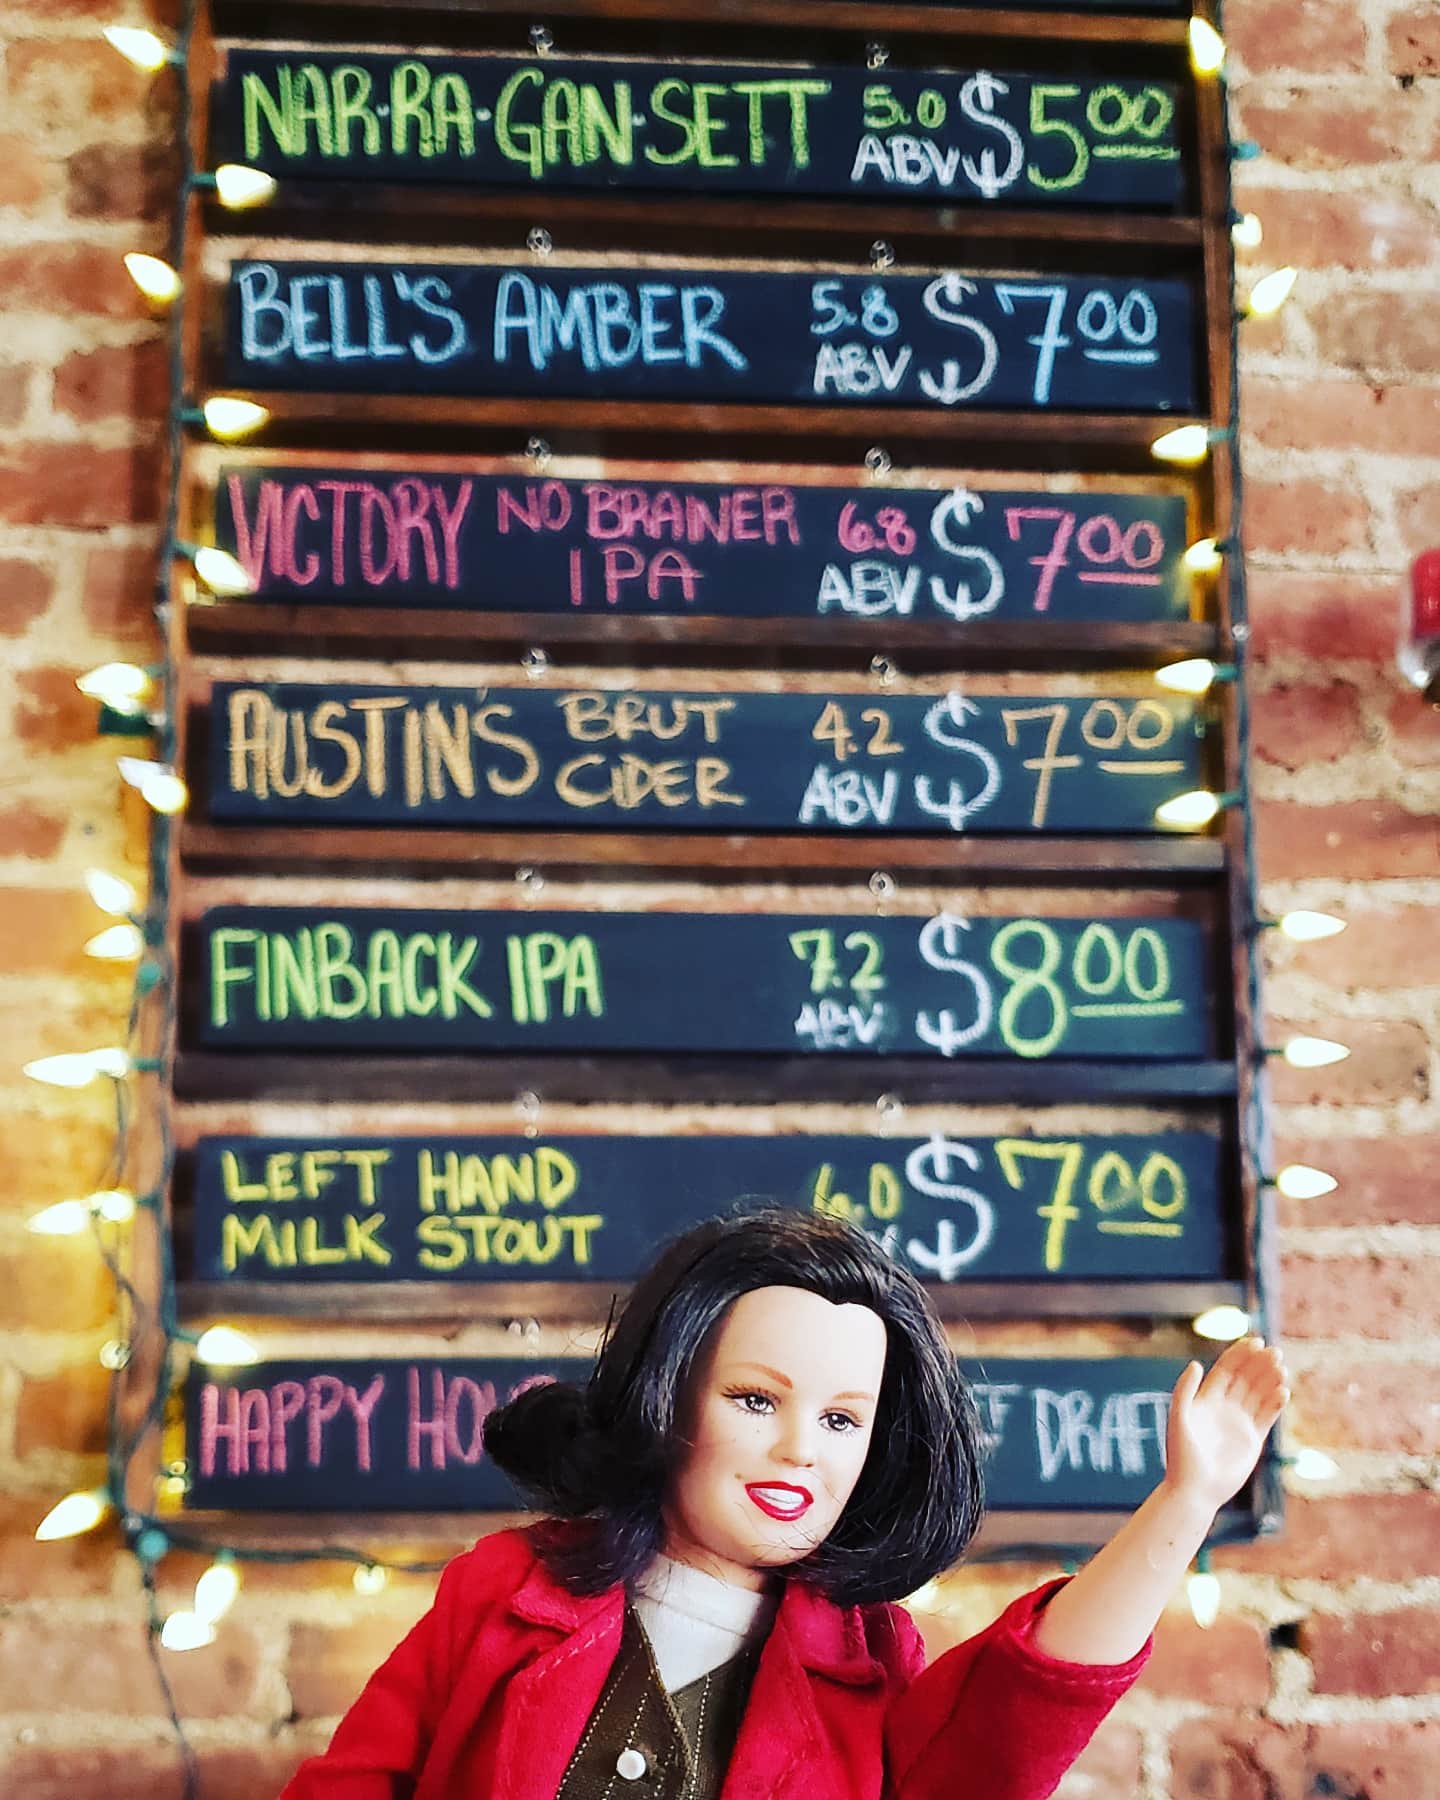 NAR·RA·GAN·SETT 5.0 ABV $5.00
BELL'S AMBER 5.8 ABV $7.00
VICTORY NO BRAINER IPA 6.8 ABV $7.00
AUSTIN'S BRUT CIDER 4.2 ABV $7.00
FINBACK IPA 7.2 ABV $8.00
LEFT HAND MILK STOUT 6.0 $7.00
HAPPY DRAFT